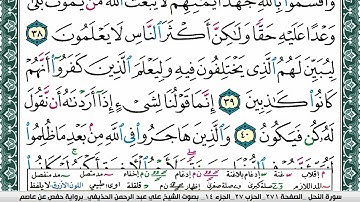 وَأَقْسَمُوا۟ بِٱللَّهِ جَهْدَ أَيْمَٰنِهِمْ لَا يَبْعَثُ ٱللَّهُ مَن يَمُوتُ بَلَىٰ
وَعْدًا عَلَيْهِ حَقًّا وَلَٰكِنَّ أَكْثَرَ ٱلنَّاسِ لَا يَعْلَمُونَ ٣٨
لِيُبَيِّنَ لَهُمُ ٱلَّذِى يَخْتَلِفُونَ فِيهِ وَلِيَعْلَمَ ٱلَّذِينَ كَفَرُوٓا۟ أَنَّهُمْ
كَانُوا۟ كَٰذِبِينَ ٣٩ إِنَّمَا قَوْلُنَا لِشَىْءٍ إِذَآ أَرَدْنَٰهُ أَن نَّقُولَ
لَهُۥ كُن فَيَكُونُ ٤٠ وَٱلَّذِينَ هَاجَرُوا۟ فِى ٱللَّهِ مِنۢ بَعْدِ مَا ظُلِمُوا۟
سورة النحل الصفحة ٢٧١ الحزب ٢٧ الجزء ١٤ بصوت الشيخ علي عبد الرحمن الحذيفي برواية حفص عن عاصم